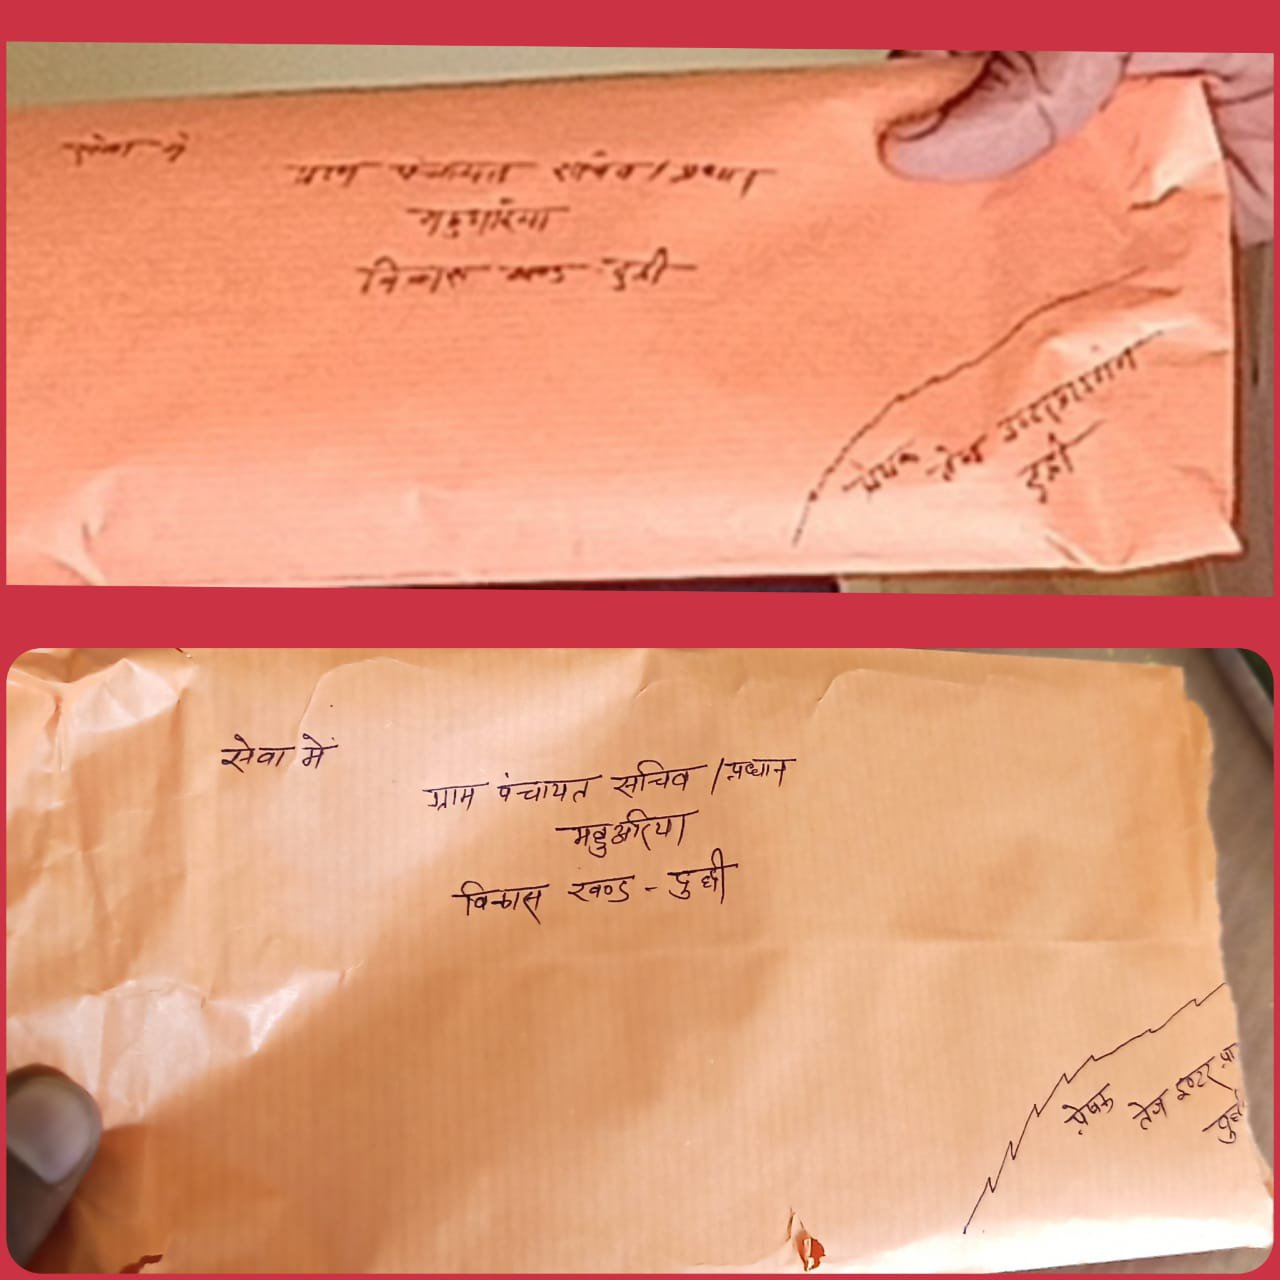 सेवा में
ग्राम पंचायत सचिव / प्रधान
महुअरिया
विकास खण्ड दुद्धी
प्रेषक तेज इण्टरप्राइजेज
दुद्धी
सेवा में
ग्राम पंचायत सचिव / प्रधान
महुअरिया
विकास खण्ड - दुद्धी
प्रेषक तेज इण्टर प्रा
दुद्धी